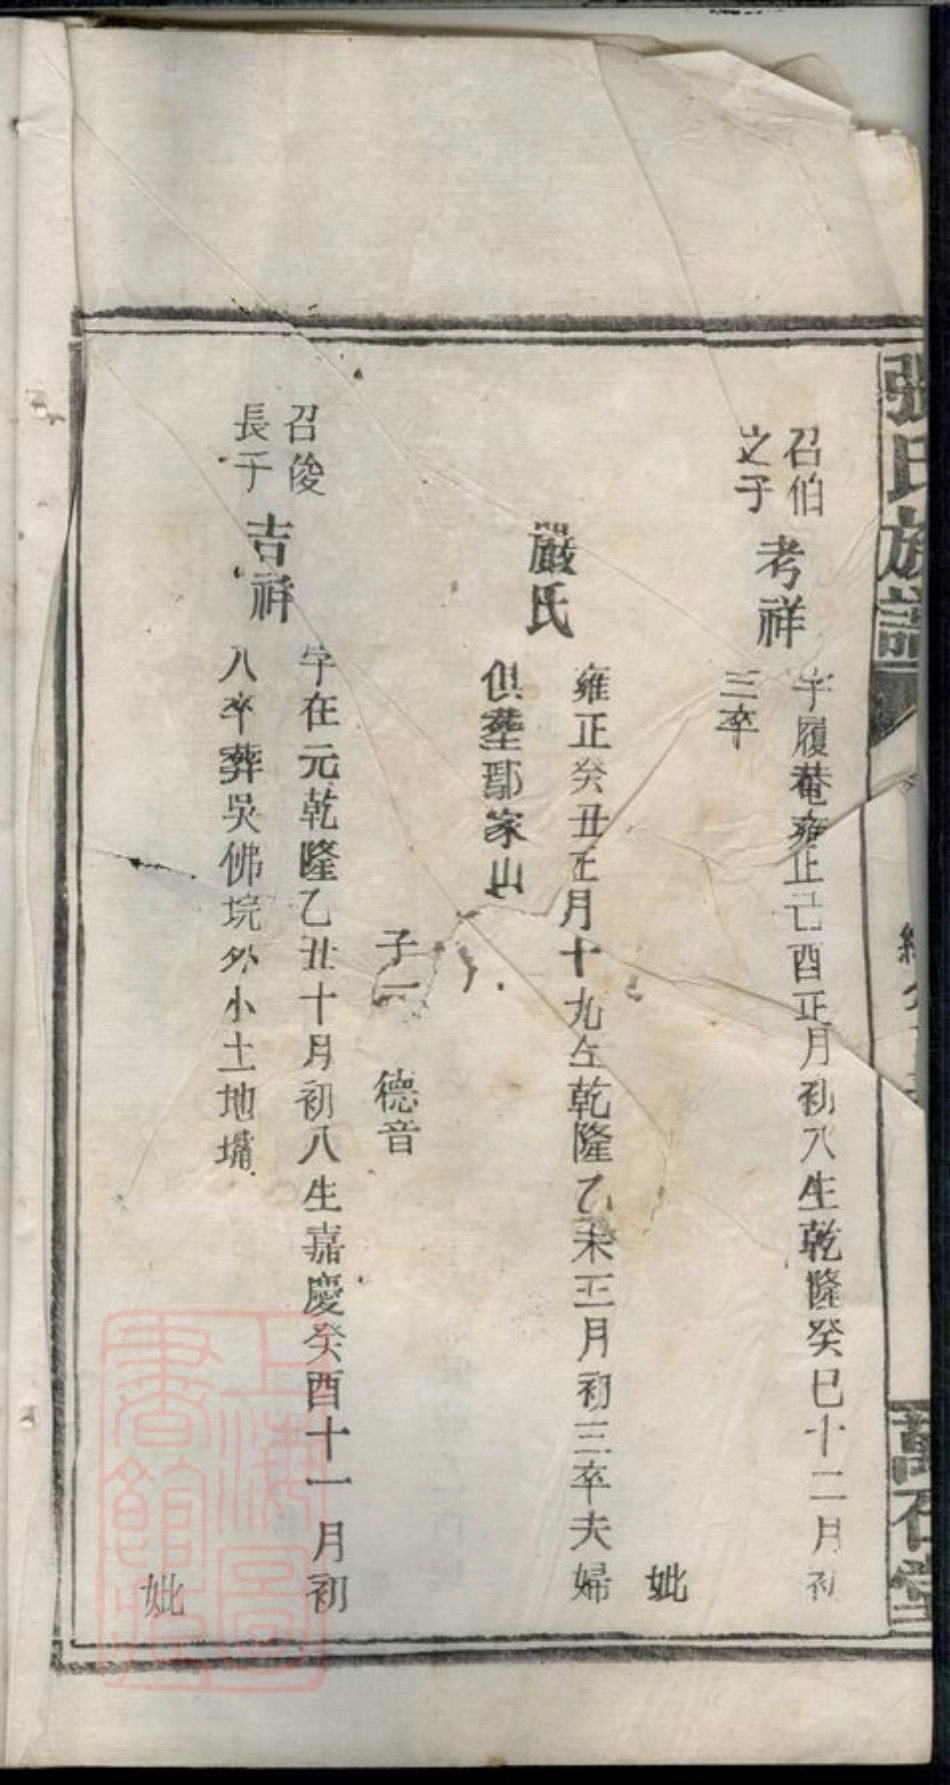 張氏族譜
萬石堂
召伯
之子
考祥
字履菴雍正己酉正月初八生乾隆癸巳十二月初
三卒
妣
嚴氏
雍正癸丑正月十九生乾隆乙未三月初三卒夫婦
俱塟鄢家山
子一 德音
召俊
長子
吉祥
字在元乾隆乙丑十月初八生嘉慶癸酉十一月初
八卒葬吳佛垸外小土地墕
妣
上海圖
書館藏